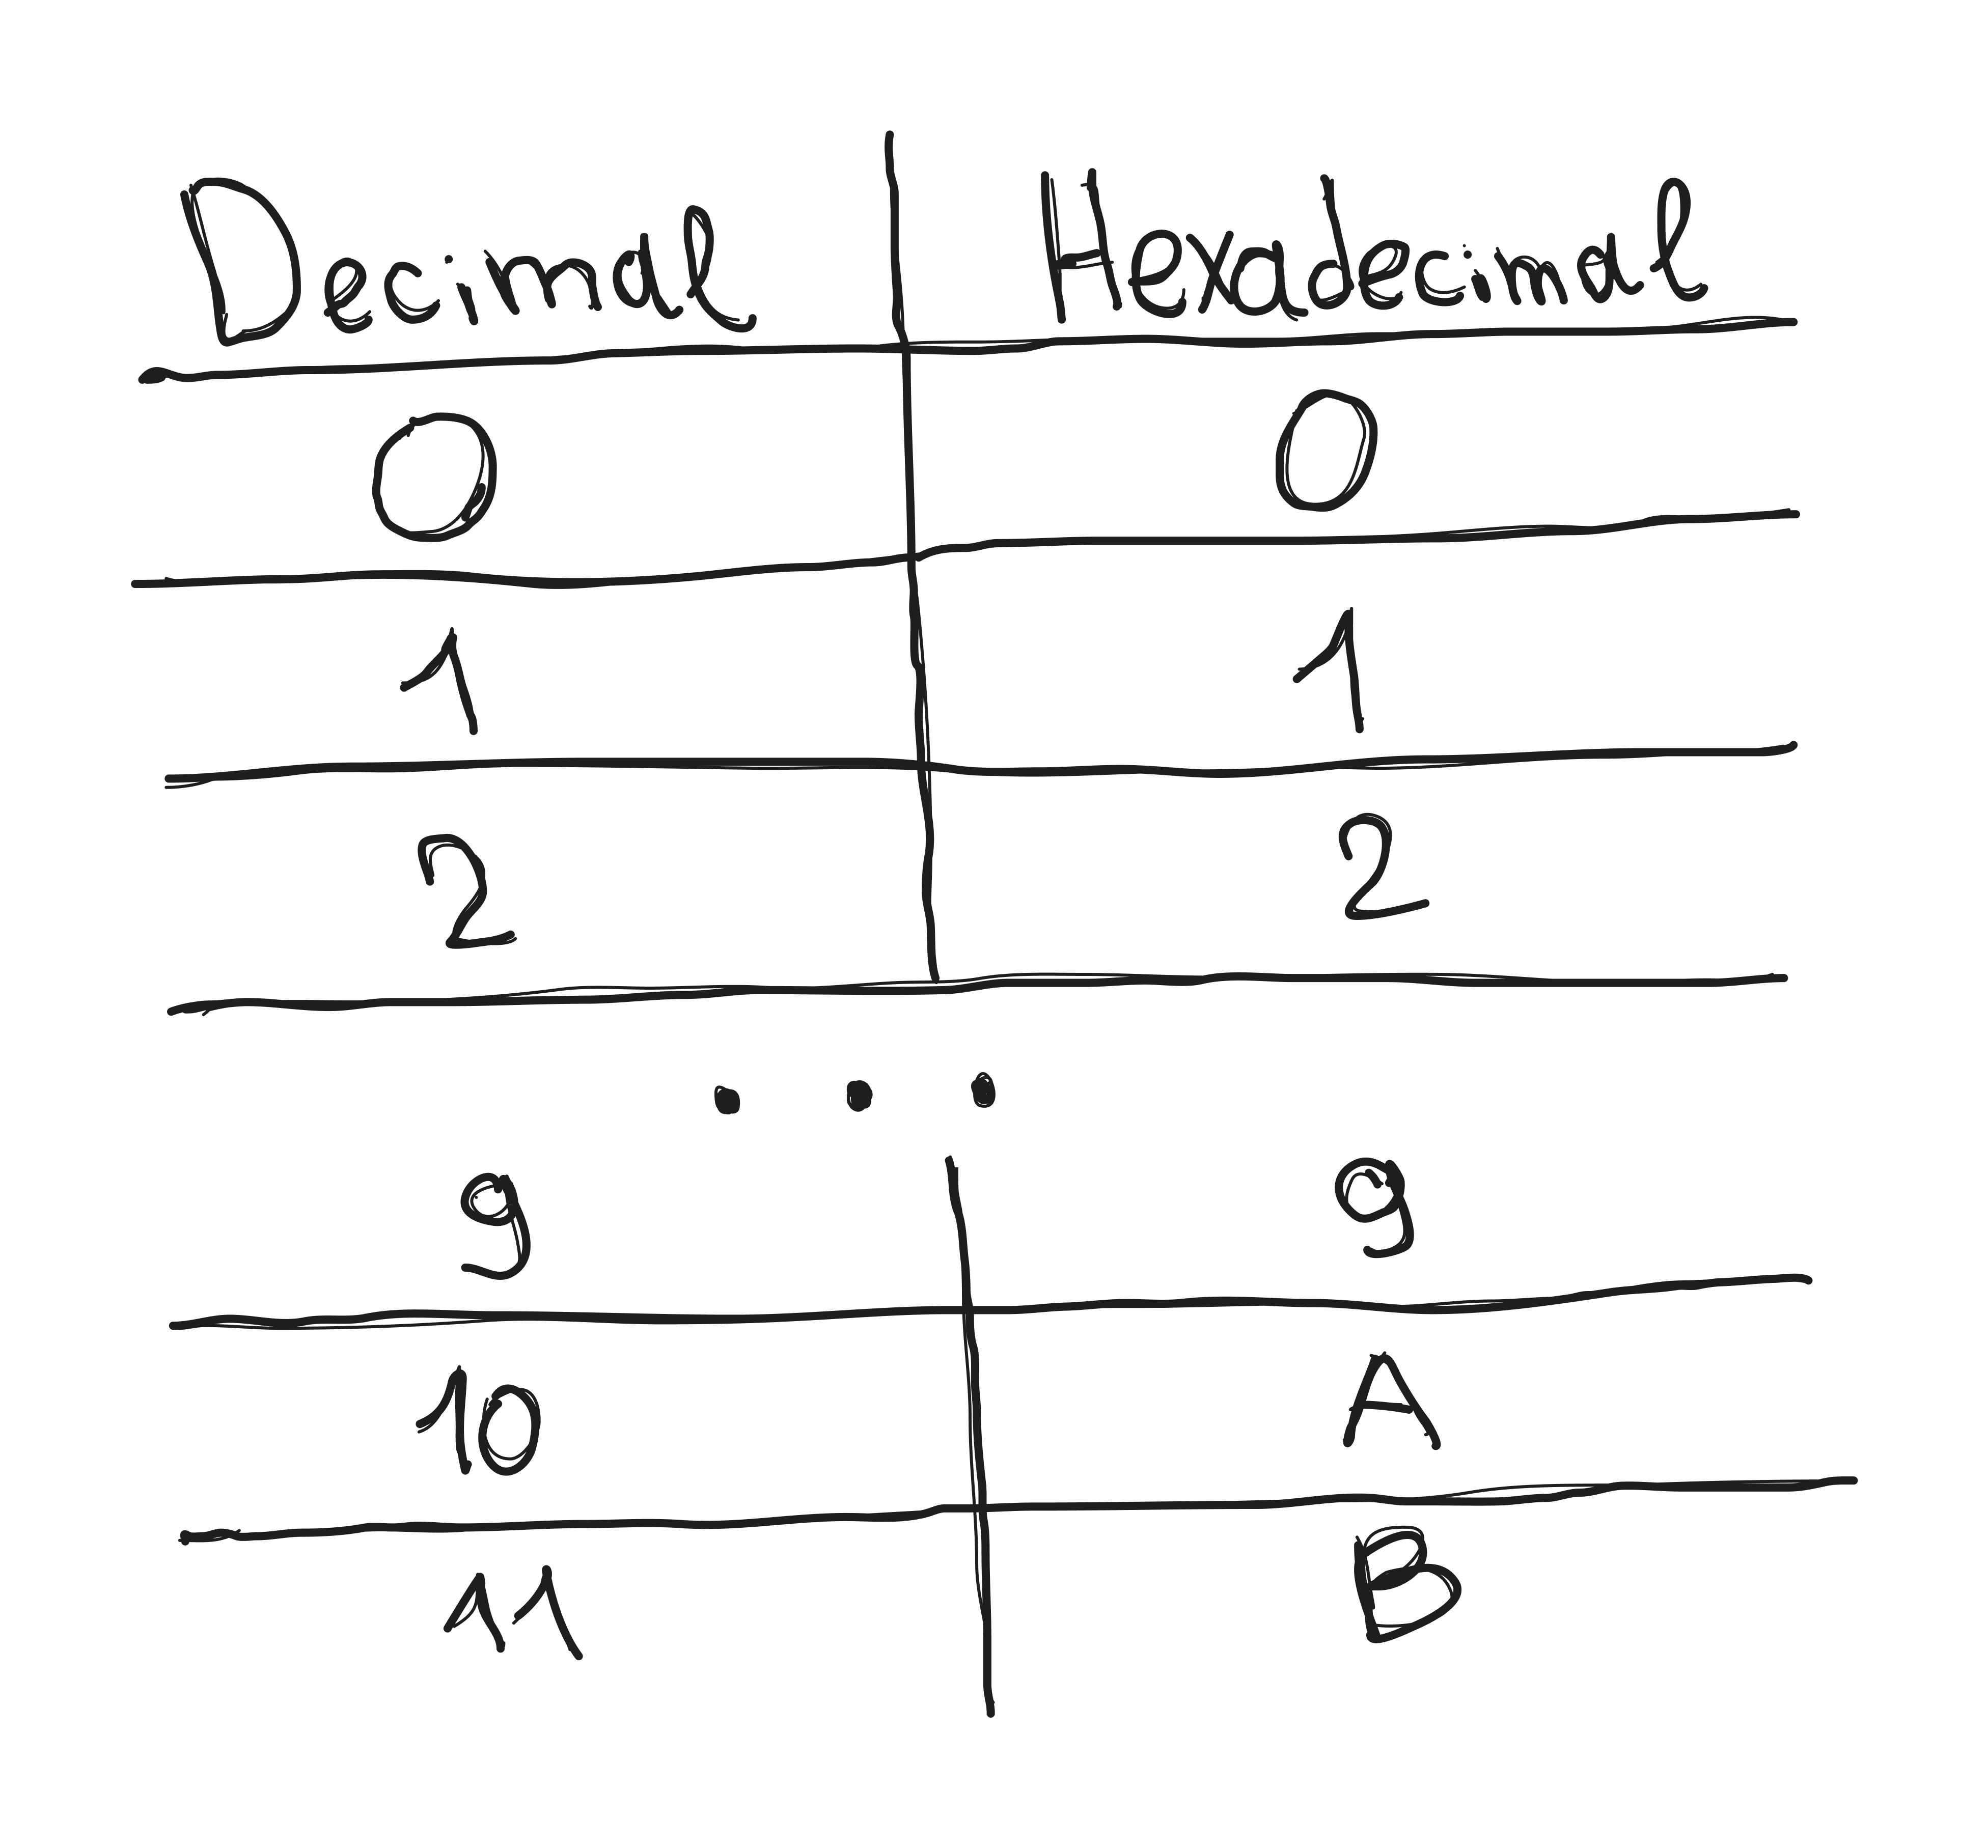 Decimal Hexadecimal
0 0
1 1
2 2
...
9 9
10 A
11 B